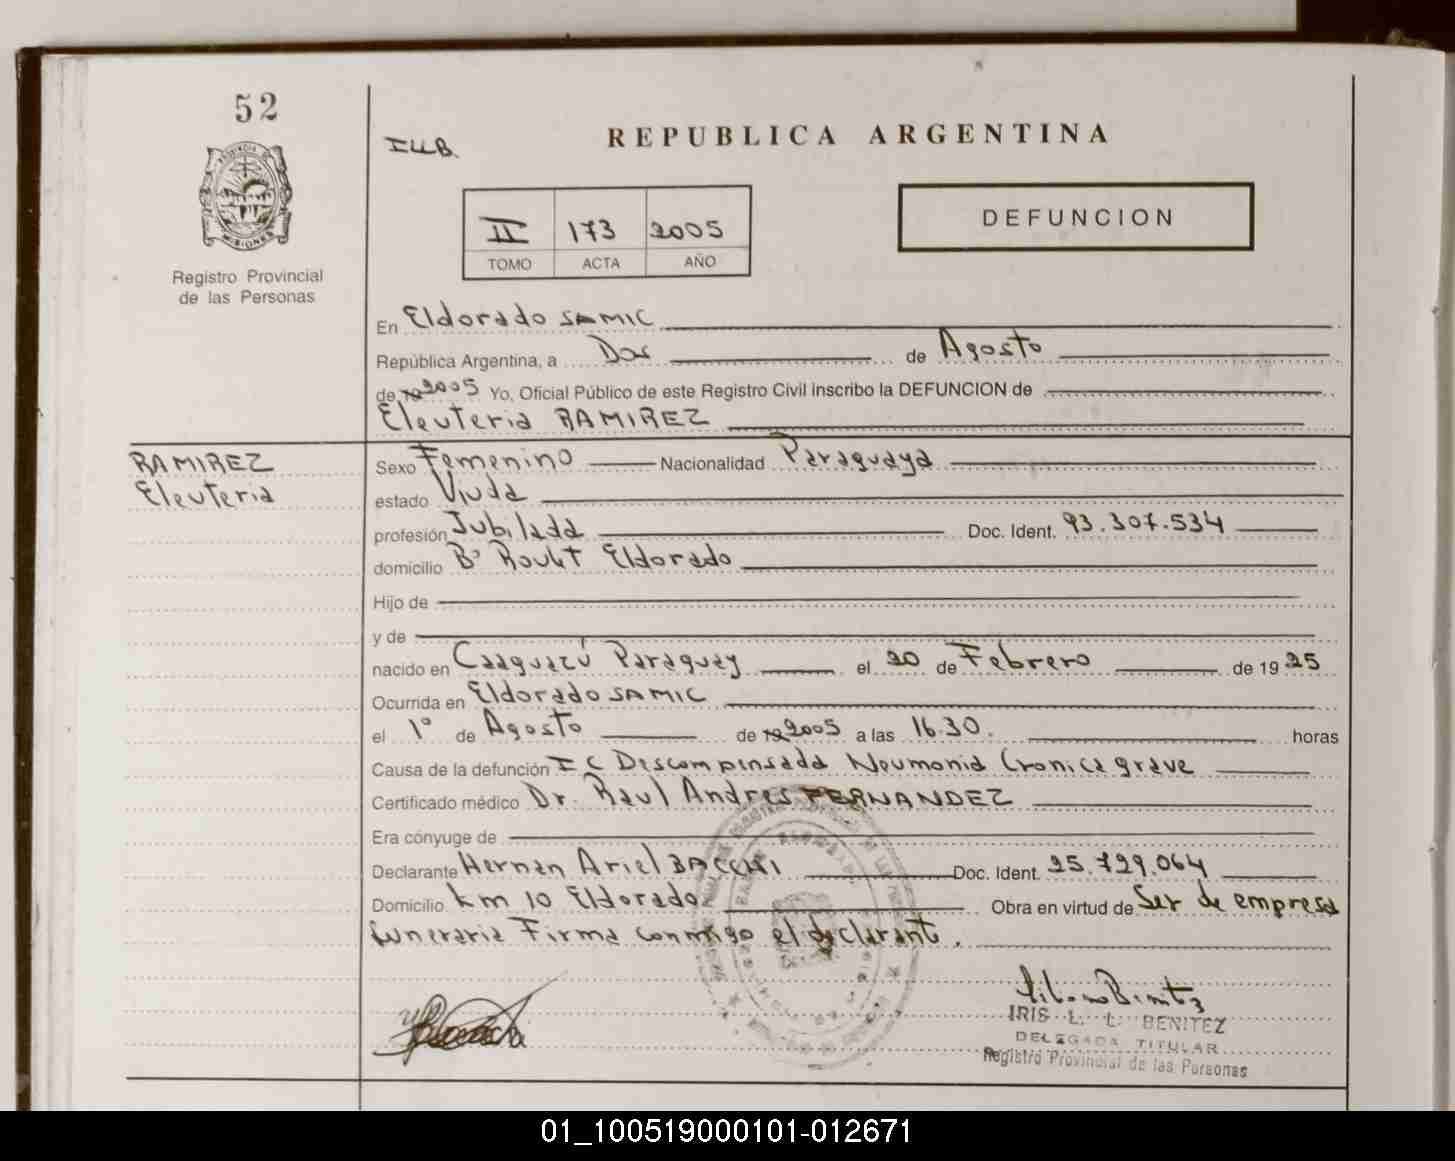 52
REPUBLICA ARGENTINA
II 173 2005
TOMO ACTA AÑO
DEFUNCION
PROVINCIA
MISIONES
Registro Provincial
de las Personas
En Eldorado SAMIC
República Argentina, a Dos de Agosto
de 19 2005 Yo, Oficial Público de este Registro Civil inscribo la DEFUNCION de
Eleuteria RAMIREZ
RAMIREZ
Eleuteria
Sexo Femenino Nacionalidad Paraguaya
estado Viuda
profesión Jubilada Doc. Ident. 93.307.534
domicilio Bº Eldorado
Hijo de
y de
nacido en Caaguazú Paraguay el 20 de Febrero de 19 25
Ocurrida en Eldorado SAMIC
el 1º de Agosto de 19 2005 a las 16.30. horas
Causa de la defunción I C Descompensada Neumonia Cronica grave
Certificado médico Dr. Raul Andres FERNANDEZ
Era cónyuge de
Declarante Hernan Ariel BACCHI Doc. Ident. 25.729.064
Domicilio Km 10 Eldorado Obra en virtud de Ser de empresa
funeraria Firma conmigo el declarante.
IRIS L. L. BENITEZ
DELEGADA TITULAR
Registro Provincial de las Personas
01_100519000101-012671